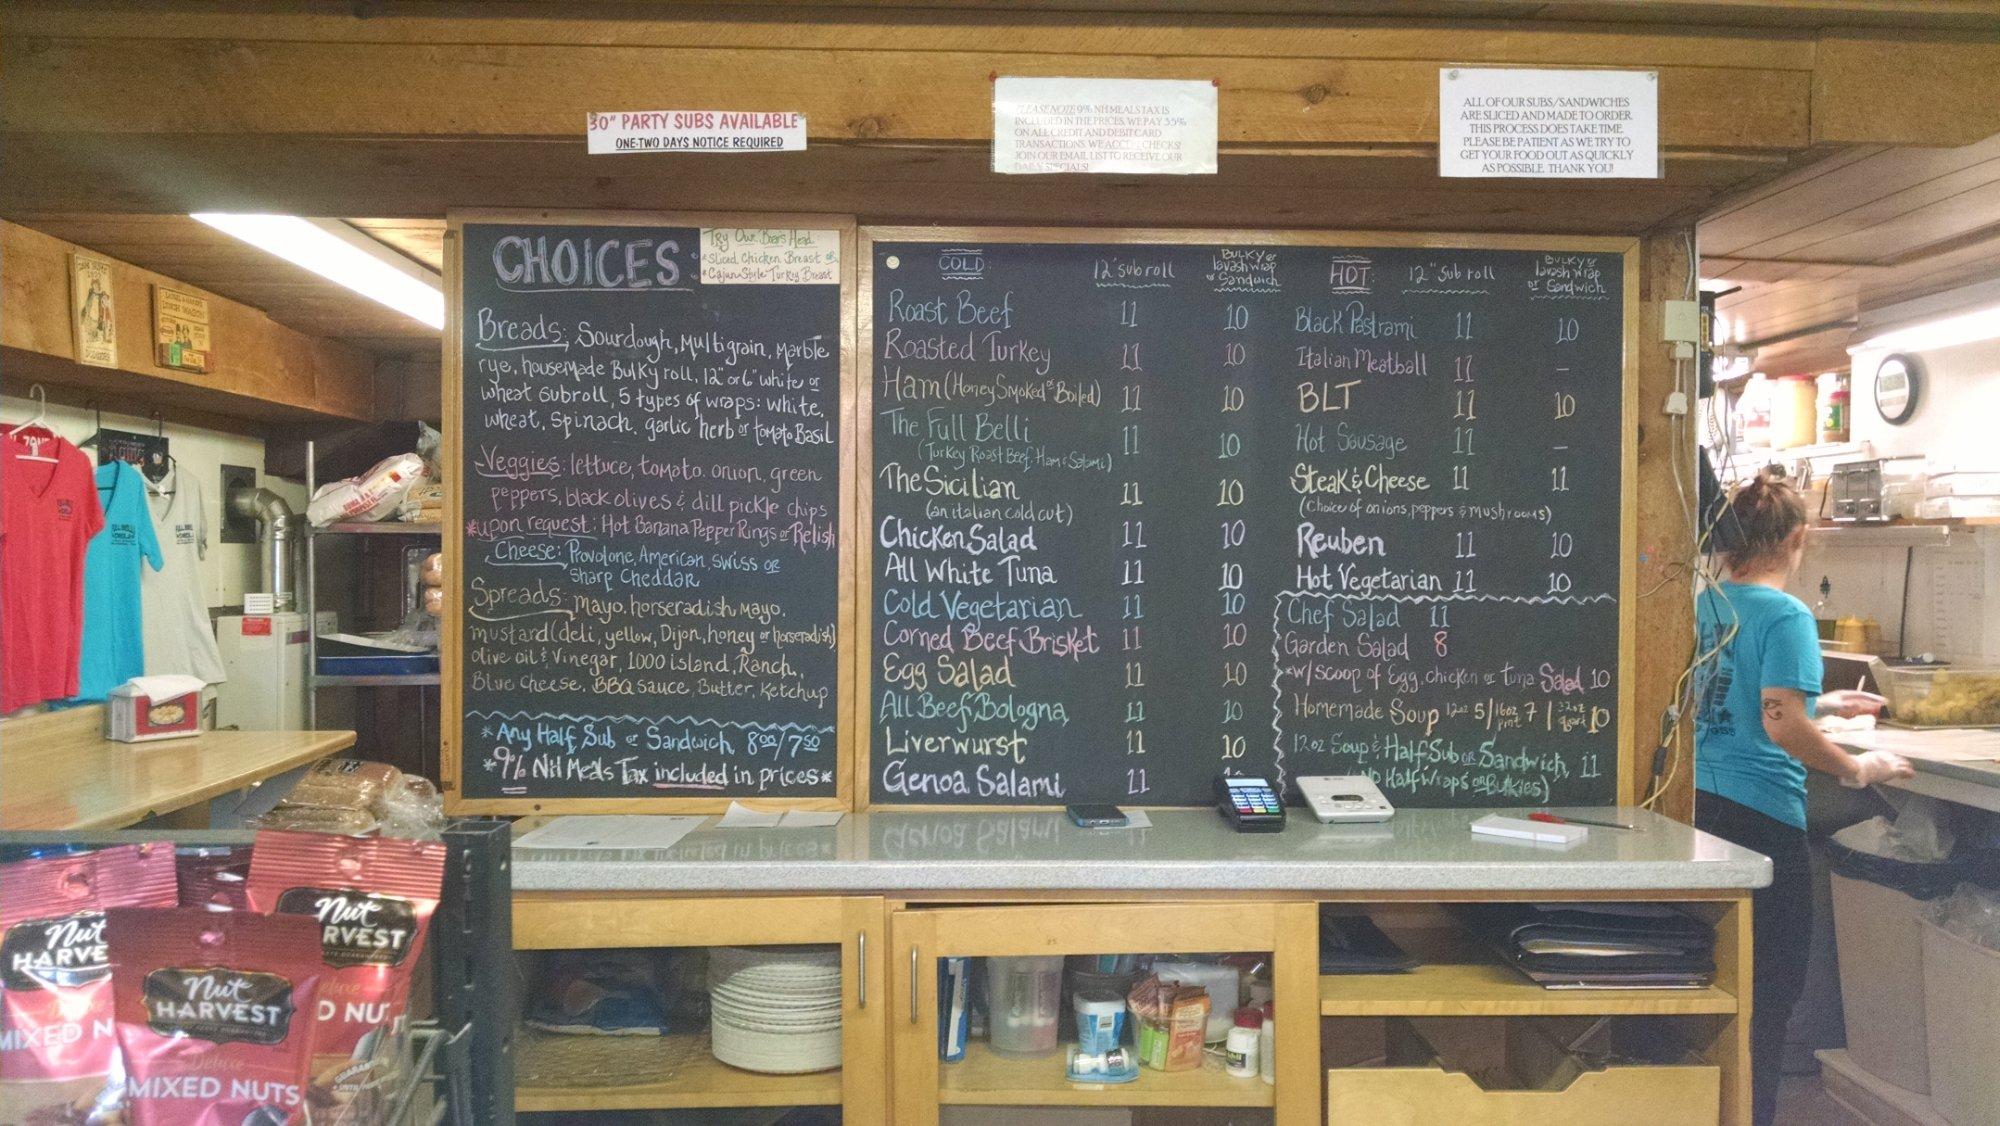 30" PARTY SUBS AVAILABLE
ONE-TWO DAYS NOTICE REQUIRED
PLEASE NOTE 9% NH MEALS TAX IS
INCLUDED IN THE PRICES. WE PAY 3.5%
ON ALL CREDIT AND DEBIT CARD
TRANSACTIONS. WE ACCEPT CHECKS!
JOIN OUR EMAIL LIST TO RECEIVE OUR
DAILY SPECIALS!
ALL OF OUR SUBS/SANDWICHES
ARE SLICED AND MADE TO ORDER.
THIS PROCESS DOES TAKE TIME.
PLEASE BE PATIENT AS WE TRY TO
GET YOUR FOOD OUT AS QUICKLY
AS POSSIBLE. THANK YOU!
CHOICES:
Try Our Boars Head
*Sliced Chicken Breast or
*Cajun Style Turkey Breast
Breads: Sourdough, Multigrain, Marble
rye, housemade Bulky roll, 12" or 6" white or
wheat subroll, 5 types of wraps: white,
wheat, spinach, garlic herb or tomato Basil
Veggies: lettuce, tomato, onion, green
peppers, black olives & dill pickle chips
*upon request: Hot Banana Pepper Rings or Relish
Cheese: Provolone, American, swiss or
sharp cheddar
Spreads: mayo, horseradish mayo,
mustard (deli, yellow, Dijon, honey or horseradish)
olive oil & Vinegar, 1000 island, Ranch,
Blue cheese, BBQ sauce, Butter, Ketchup
*Any Half Sub or Sandwich 8.00/7.50
*9% NH Meals Tax included in prices*
COLD: 12" sub roll BULKY or lavash wrap or Sandwich
Roast Beef 11 10
Roasted Turkey 11 10
Ham (Honey Smoked or Boiled) 11 10
The Full Belli 11 10
(Turkey Roast Beef, Ham & Salami)
The Sicilian 11 10
(an italian cold cut)
Chicken Salad 11 10
All White Tuna 11 10
Cold Vegetarian 11 10
Corned Beef Brisket 11 10
Egg Salad 11 10
All Beef Bologna 11 10
Liverwurst 11 10
Genoa Salami 11
HOT: 12" sub roll BULKY or lavash wrap or Sandwich
Black Pastrami 11 10
Italian Meatball 11 –
BLT 11 10
Hot Sausage 11 –
Steak & Cheese 11 11
(choice of onions, peppers & mushrooms)
Reuben 11 10
Hot Vegetarian 11 10
Chef Salad 11
Garden Salad 8
*w/scoop of Egg, chicken or tuna Salad 10
Homemade Soup 12oz 5/16oz pint 7/32oz quart 10
12oz Soup & Half Sub or Sandwich 11
(No Half Wraps or Bulkies)
Nut
HARVEST
Deluxe
MIXED NUTS
Nut
HARVE
MIXED N
Nut
RVEST
D NU